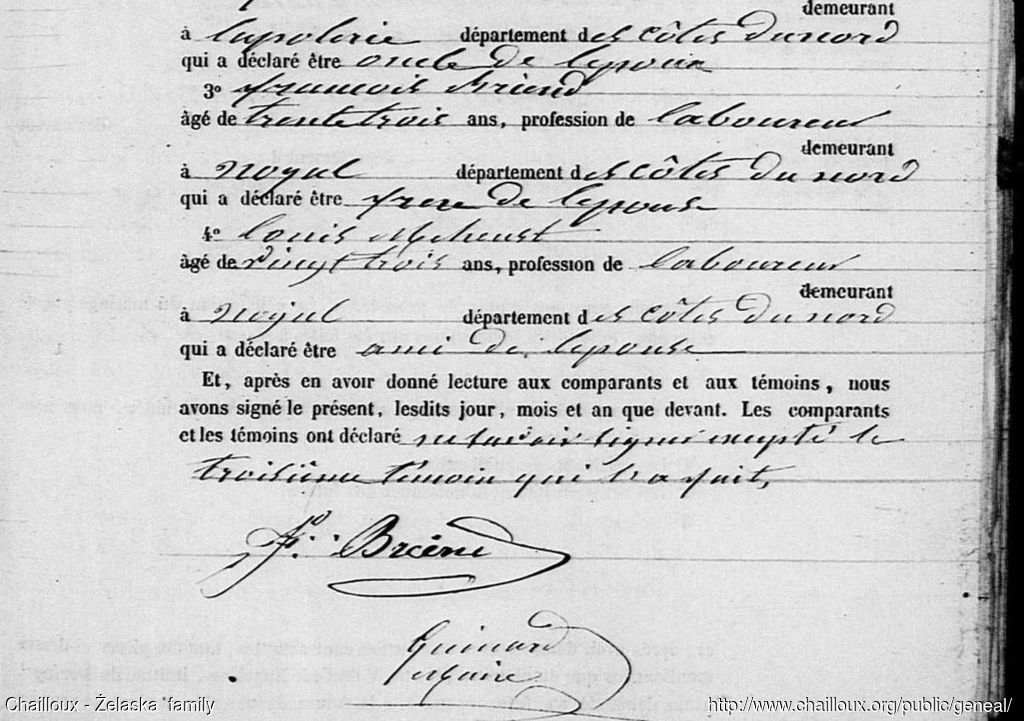 demeurant
à lapoterie département des côtes du nord
qui a déclaré être oncle de lepoux
3º françois Briend
âgé de trente trois ans, profession de laboureur
demeurant
à noyal département des côtes du nord
qui a déclaré être frere de lepouse
4º louis Meheust
âgé de vingt trois ans, profession de laboureur
demeurant
à noyal département des côtes du nord
qui a déclaré être ami de lepouse
Et, après en avoir donné lecture aux comparants et aux témoins, nous
avons signé le présent, lesdits jour, mois et an que devant. Les comparants
et les témoins ont déclaré ne savoir signer excepté le
troisième témoin qui l'a fait,
f. Briend
Guinard
Maire
Chailloux - Żelaska family
http://www.chailloux.org/public/geneal/